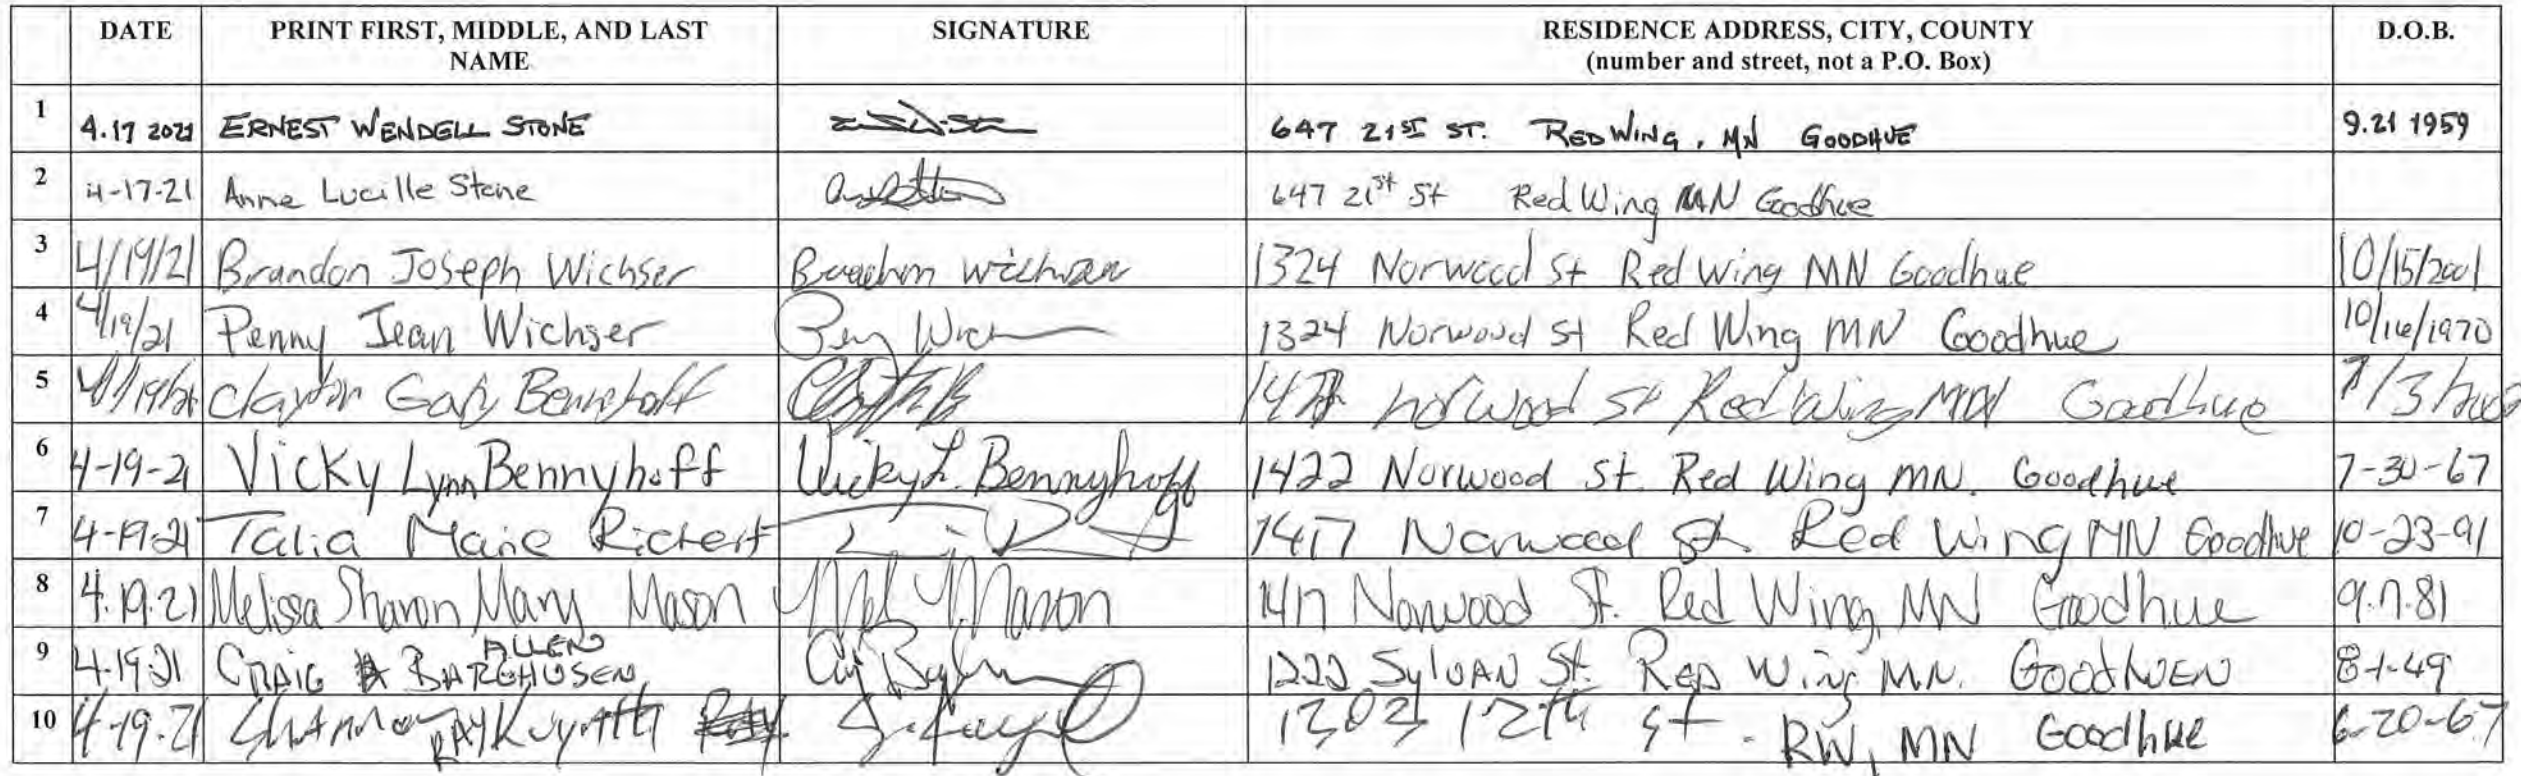 DATE PRINT FIRST, MIDDLE, AND LAST NAME SIGNATURE RESIDENCE ADDRESS, CITY, COUNTY (number and street, not a P.O. Box) D.O.B.
1 4.17 2021 ERNEST WENDELL STONE 647 21ST ST. RED WING, MN GOODHUE 9.21 1959
2 4-17-21 Anne Lucille Stone 647 21st St Red Wing MN Goodhue
3 4/19/21 Brandon Joseph Wichser 1324 Norwood St Red Wing MN Goodhue 10/15/2001
4 4/19/21 Penny Jean Wichser Penny 1324 Norwood St Red Wing MN Goodhue 10/16/1970
5 4/19/21 Clayton Gary Bennyhoff Norwood St Red Wing MN Goodhue
6 4-19-21 Vicky Lynn Bennyhoff Vicky L. Bennyhoff 1422 Norwood St. Red Wing MN. Goodhue 7-30-67
7 4-19-21 Talia Marie Rickert 1417 Norwood St. Red Wing MN Goodhue 10-23-91
8 4.19.21 Melissa Sharon Mary Mason Mel M. Mason 1417 Norwood St. Red Wing, MN Goodhue 9.7.81
9 4-19-21 CRAIG ALLEN BARGHUSEN 1222 SYLVAN St. RED Wing MN. GOODHUEN 8-1-49
10 4-19-21 RAY 12th St. RW, MN Goodhue 6-20-67